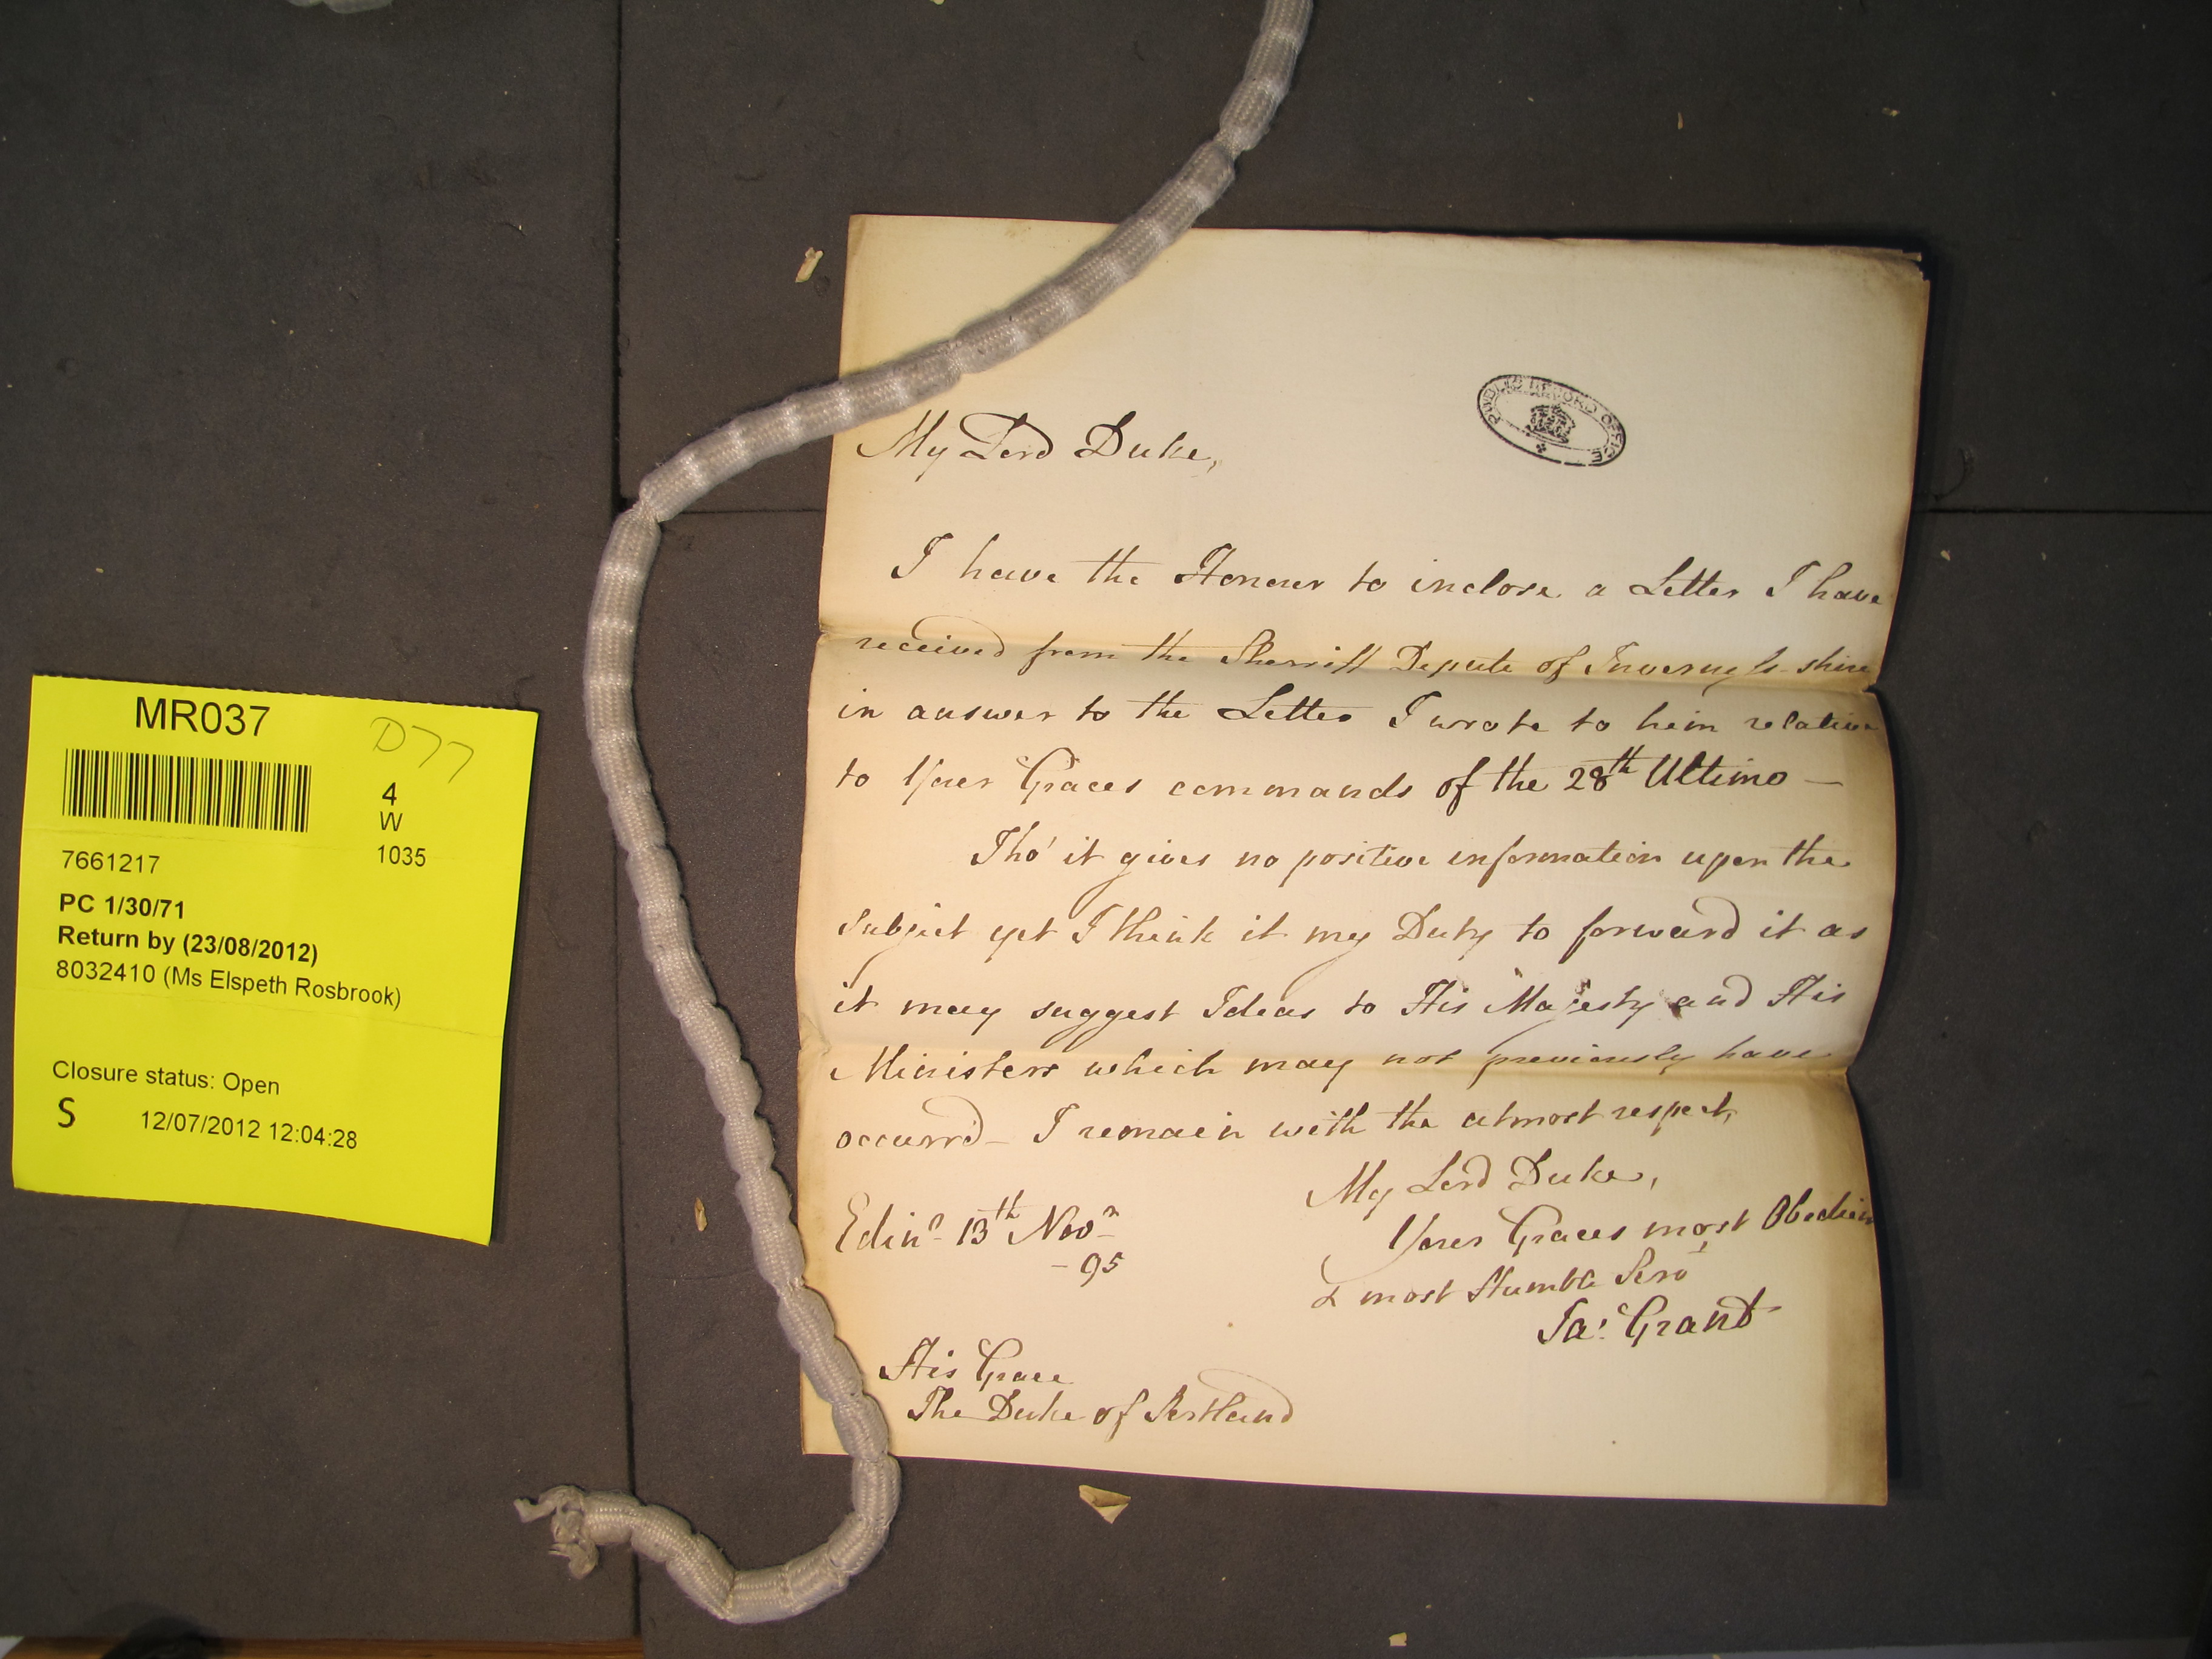 MR037
D77
4
W
1035
7661217
PC 1/30/71
Return by (23/08/2012)
8032410 (Ms Elspeth Rosbrook)
Closure status: Open
S 12/07/2012 12:04:28
PUBLIC RECORD OFFICE
My Lord Duke,
I have the Honour to inclose a Letter I have
received from the Sherriff Depute of Inverness-shire
in answer to the Letter I wrote to him relative
to Your Graces commands of the 28th Ultimo —
Tho' it gives no positive information upon the
Subject yet I think it my Duty to forward it as
it may suggest Ideas to His Majesty and His
Ministers which may not previously have
occurrd — I remain with the utmost respect,
My Lord Duke,
Your Graces most Obedien
& most Humble Servt
Ja: Grant
Edinr 13th Novr
- 95
His Grace
The Duke of Portland